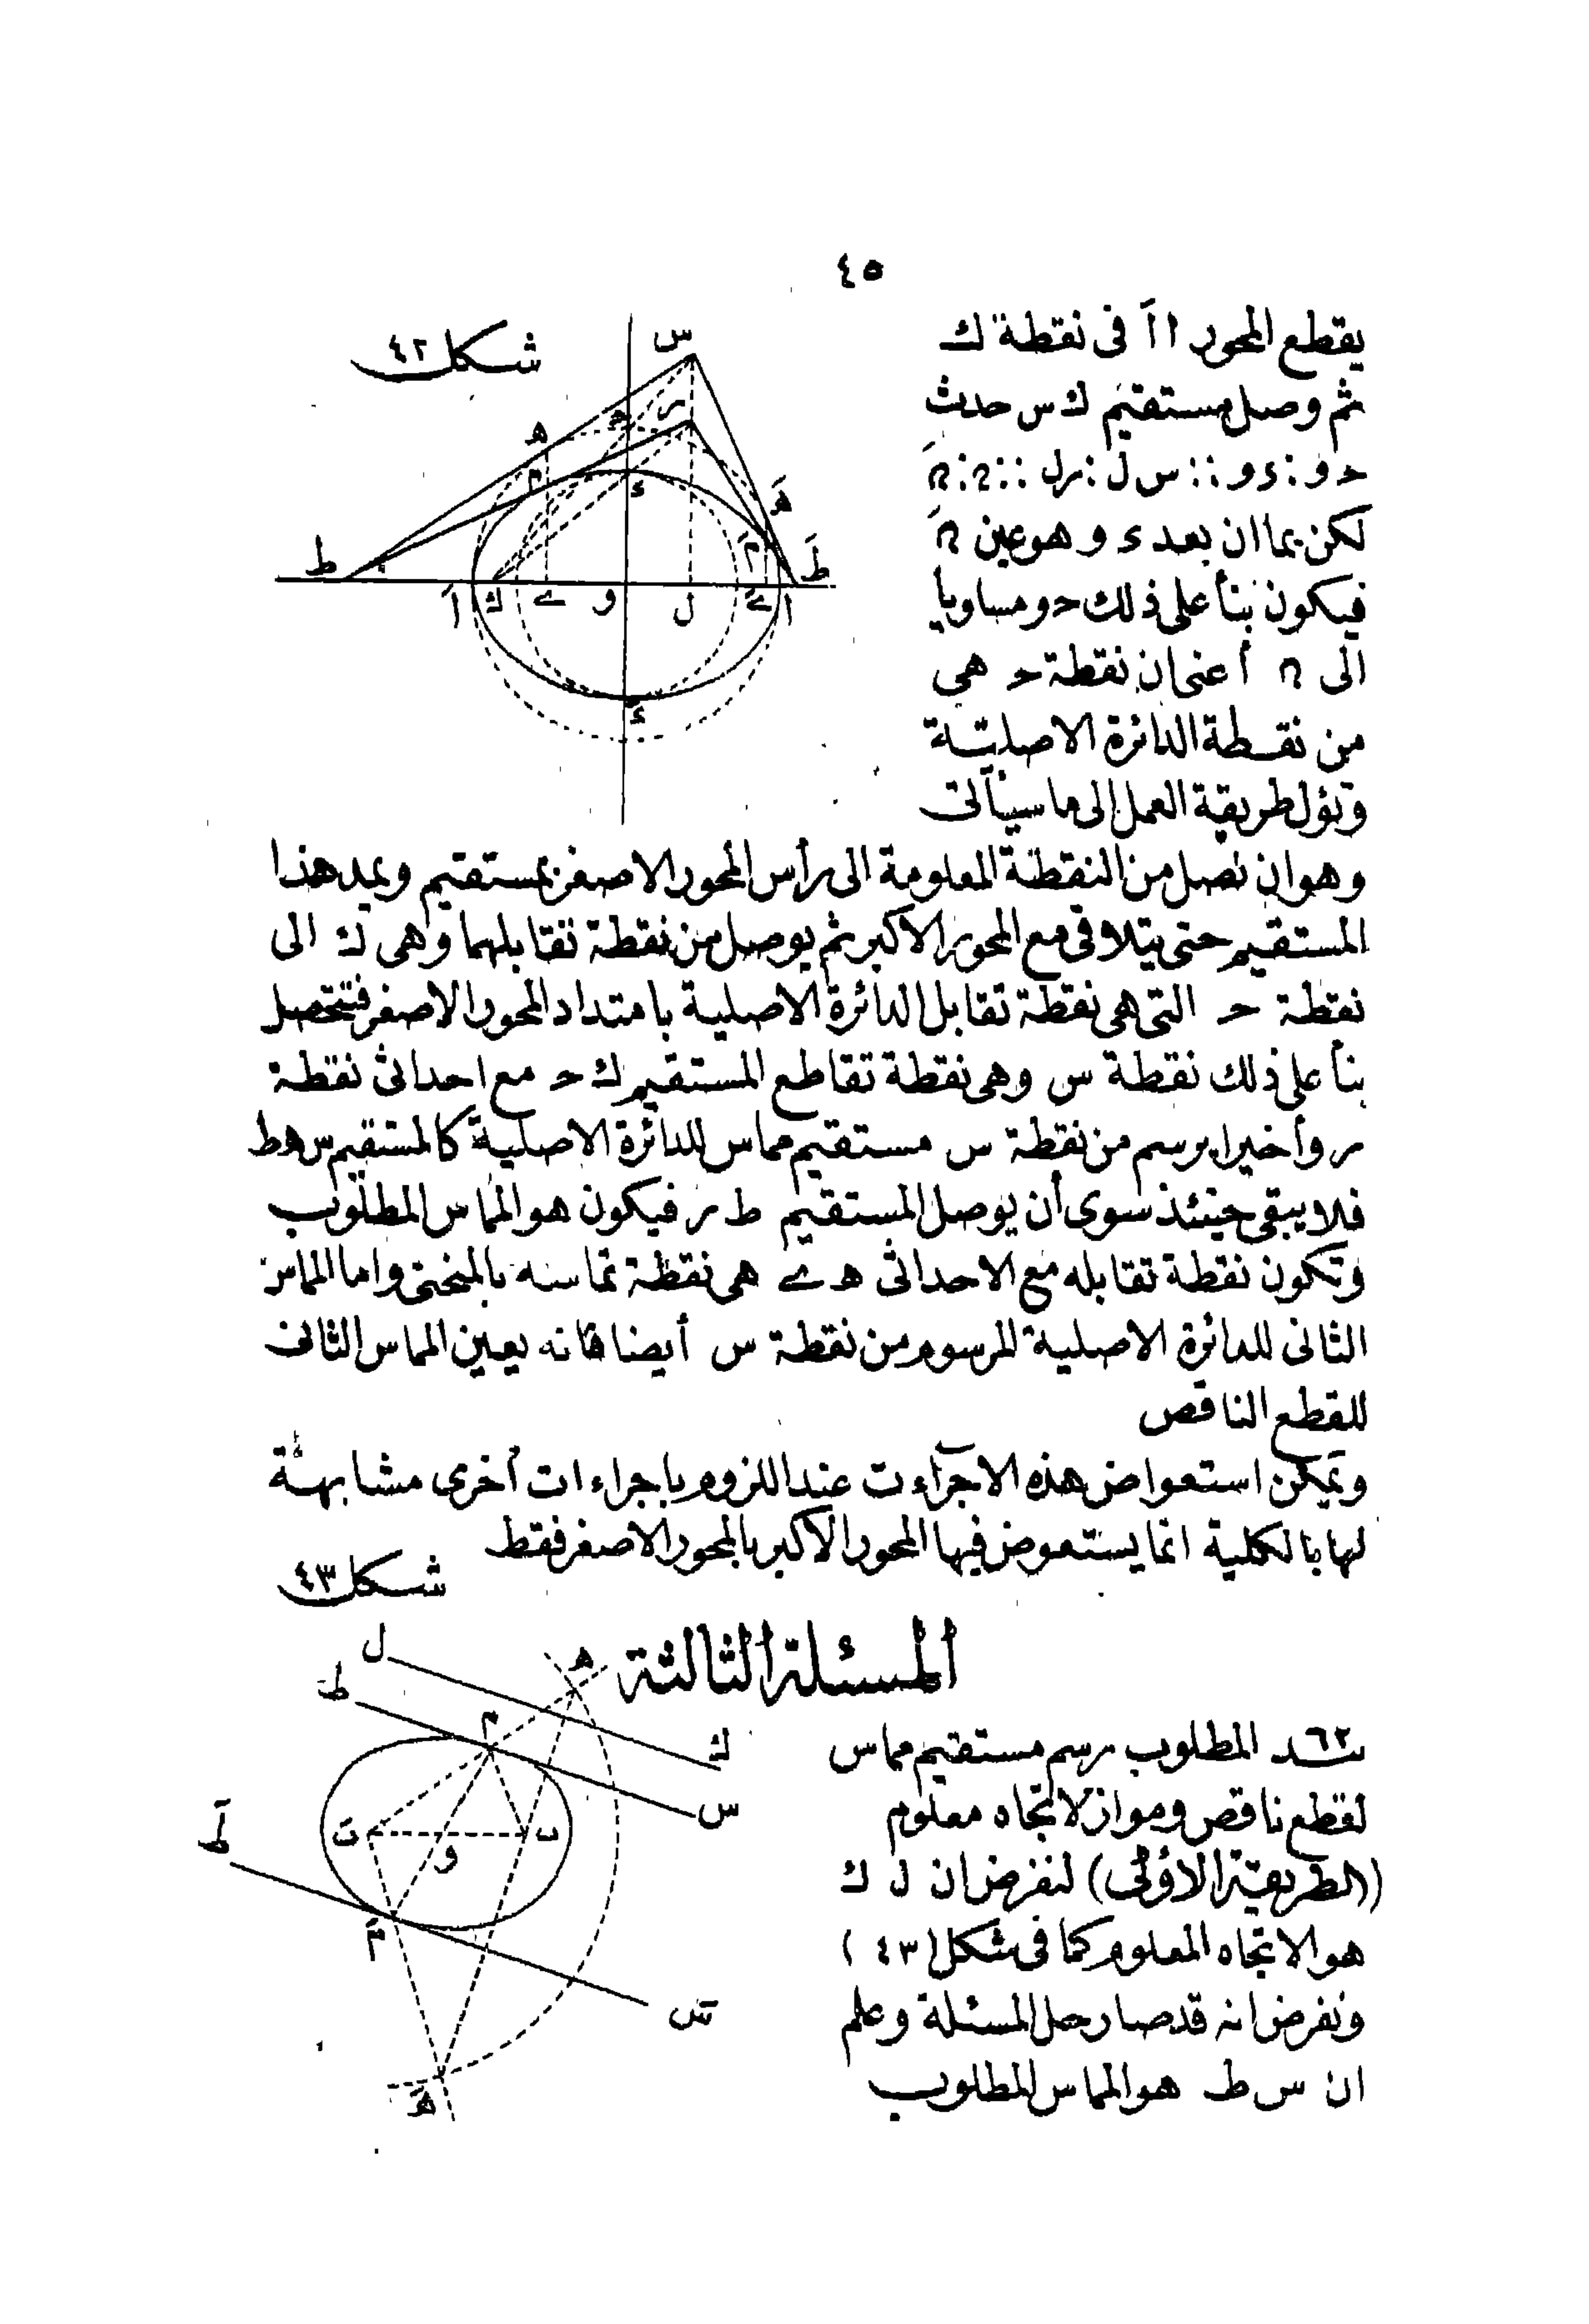 ٤٥
يقطع المحور ا اَ فى نقطة ك
شكل ٤٢
ثم وصل مستقيم ك س حدث
حـ و : ء و :: س ل : ر ل :: ດ : ດَ
لكن بما ان بعد ء و هو عين ດَ
فيكون بنأ على ذلك حـ و مساويا
الى ດ أعنى ان نقطة حـ هى
من نقطة الدائرة الاصلية
وتؤل طريقة العمل الى ما سيأتى
وهو ان نصل من النقطة المعلومة الى رأس المحور الاصغر بمستقيم ويمد هذا
المستقيم حتى يتلاقى مع المحور الاكبر ثم يوصل من نقطة تقابلهما وهى ك الى
نقطة حـ التى هى نقطة تقابل الدائرة الاصلية بامتداد المحور الاصغر فتتحصل
بنأ على ذلك نقطة س وهى نقطة تقاطع المستقيم ك حـ مع احداثى نقطة
ر وأخيرا يرسم من نقطة س مستقيم مماس للدائرة الاصلية كالمستقيم س ه ط
فلا يبقى حينئذ سوى أن يوصل المستقيم ط ر فيكون هو المماس المطلوب
وتكون نقطة تقابله مع الاحداثى ه ے هى نقطة تماسه بالمنحنى واما المماس
الثانى للدائرة الاصلية المرسوم من نقطة س أيضا فانه يعين المماس الثانى
للقطع الناقص
ويمكن استعواض هذه الاجرآءت عند اللزوم باجراءات أخرى مشابهة
لها بالكلية انما يستعوض فيها المحور الاكبر بالمحور الاصغر فقط
شكل ٤٣
المسئلة الثالثة
٦٢ند المطلوب رسم مستقيم مماس
لقطع ناقص ومواز لاتجاه معلوم
(الطريقة الاؤلى) لنفرض ان ل ك
هو الاتجاه المعلوم كما فى شكل (٤٣)
ونفرض انه قد صار حل المسئلة وعلم
ان س ط هو المماس المطلوب